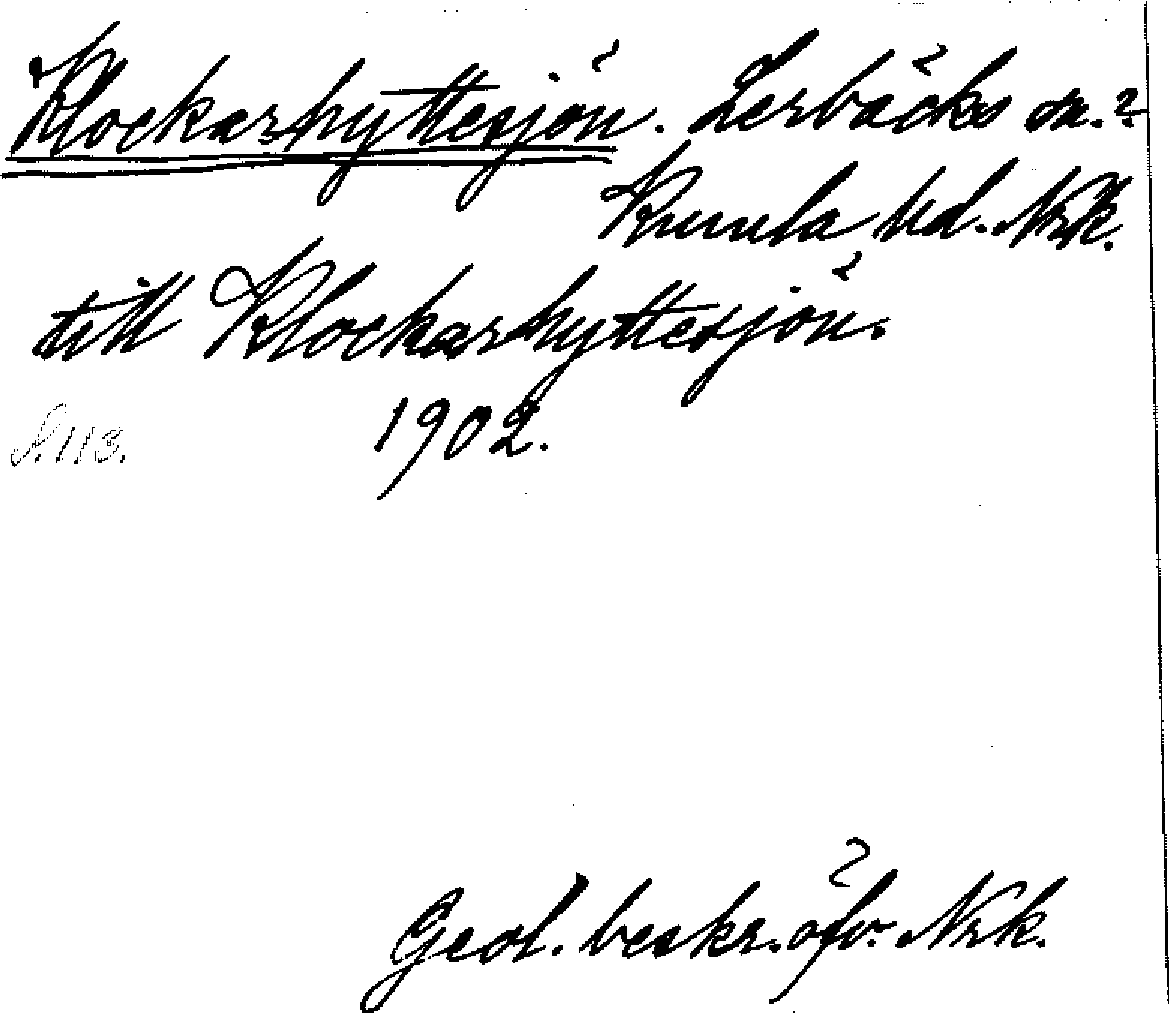 Klockarhyttesjön. Lerbäcks sn.?
Kumla hd. Nrk.
till Klockarhyttesjön.
1902.
S. 113.
Geol. beskr. öfv. Nrk.